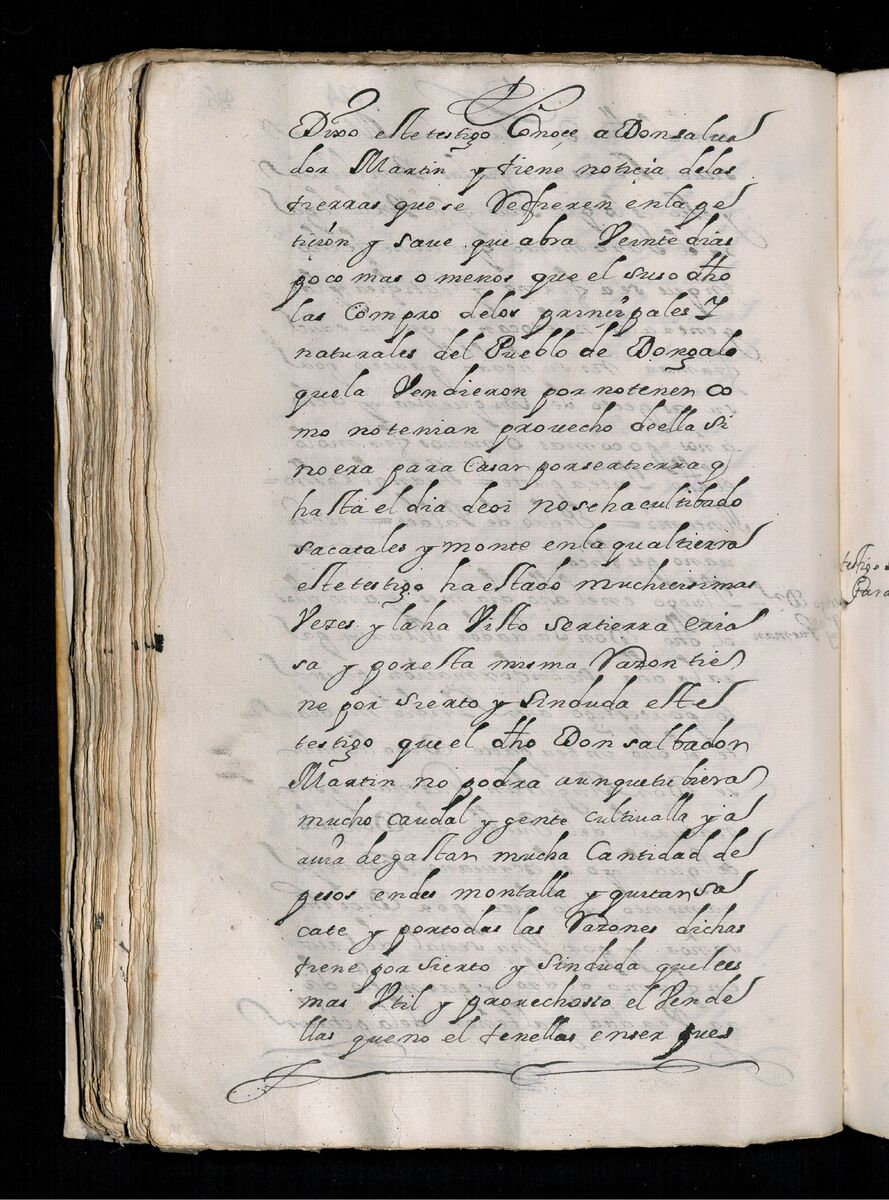 Dixo este testigo Conoce a Don salua
dor Martin y tiene noticia delas
tierras que se Refieren en la pe
tiçion y saue que abra Veinte dias
poco mas o menos que el suso dho
las Compro delos prinçipales y
naturales del Pueblo de Dongalo
quela Vendieron por no tener co
mo no tenian prouecho de ella si
no era para Casar por ser tierra q
hasta el dia de oi no se ha cultibado
sacatales y monte en la qual tierra
este testigo ha estado muchicsimas
Vezes y la ha Visto ser tierra eria
sa y por esta misma Razon tie
ne por sierto y sinduda este
testigo que el dho Don salbador
Martin no podra aunque tubiera
mucho caudal y gente cultiualla y a
auia de gastar mucha Cantidad de
pesos en des montalla y quitar sa
cate y por todas las Razones dichas
tiene por sierto y sinduda que les es
mas Vtil y prouechosso el Vende
llas que no el tenellas en ser pues
testigo
Para